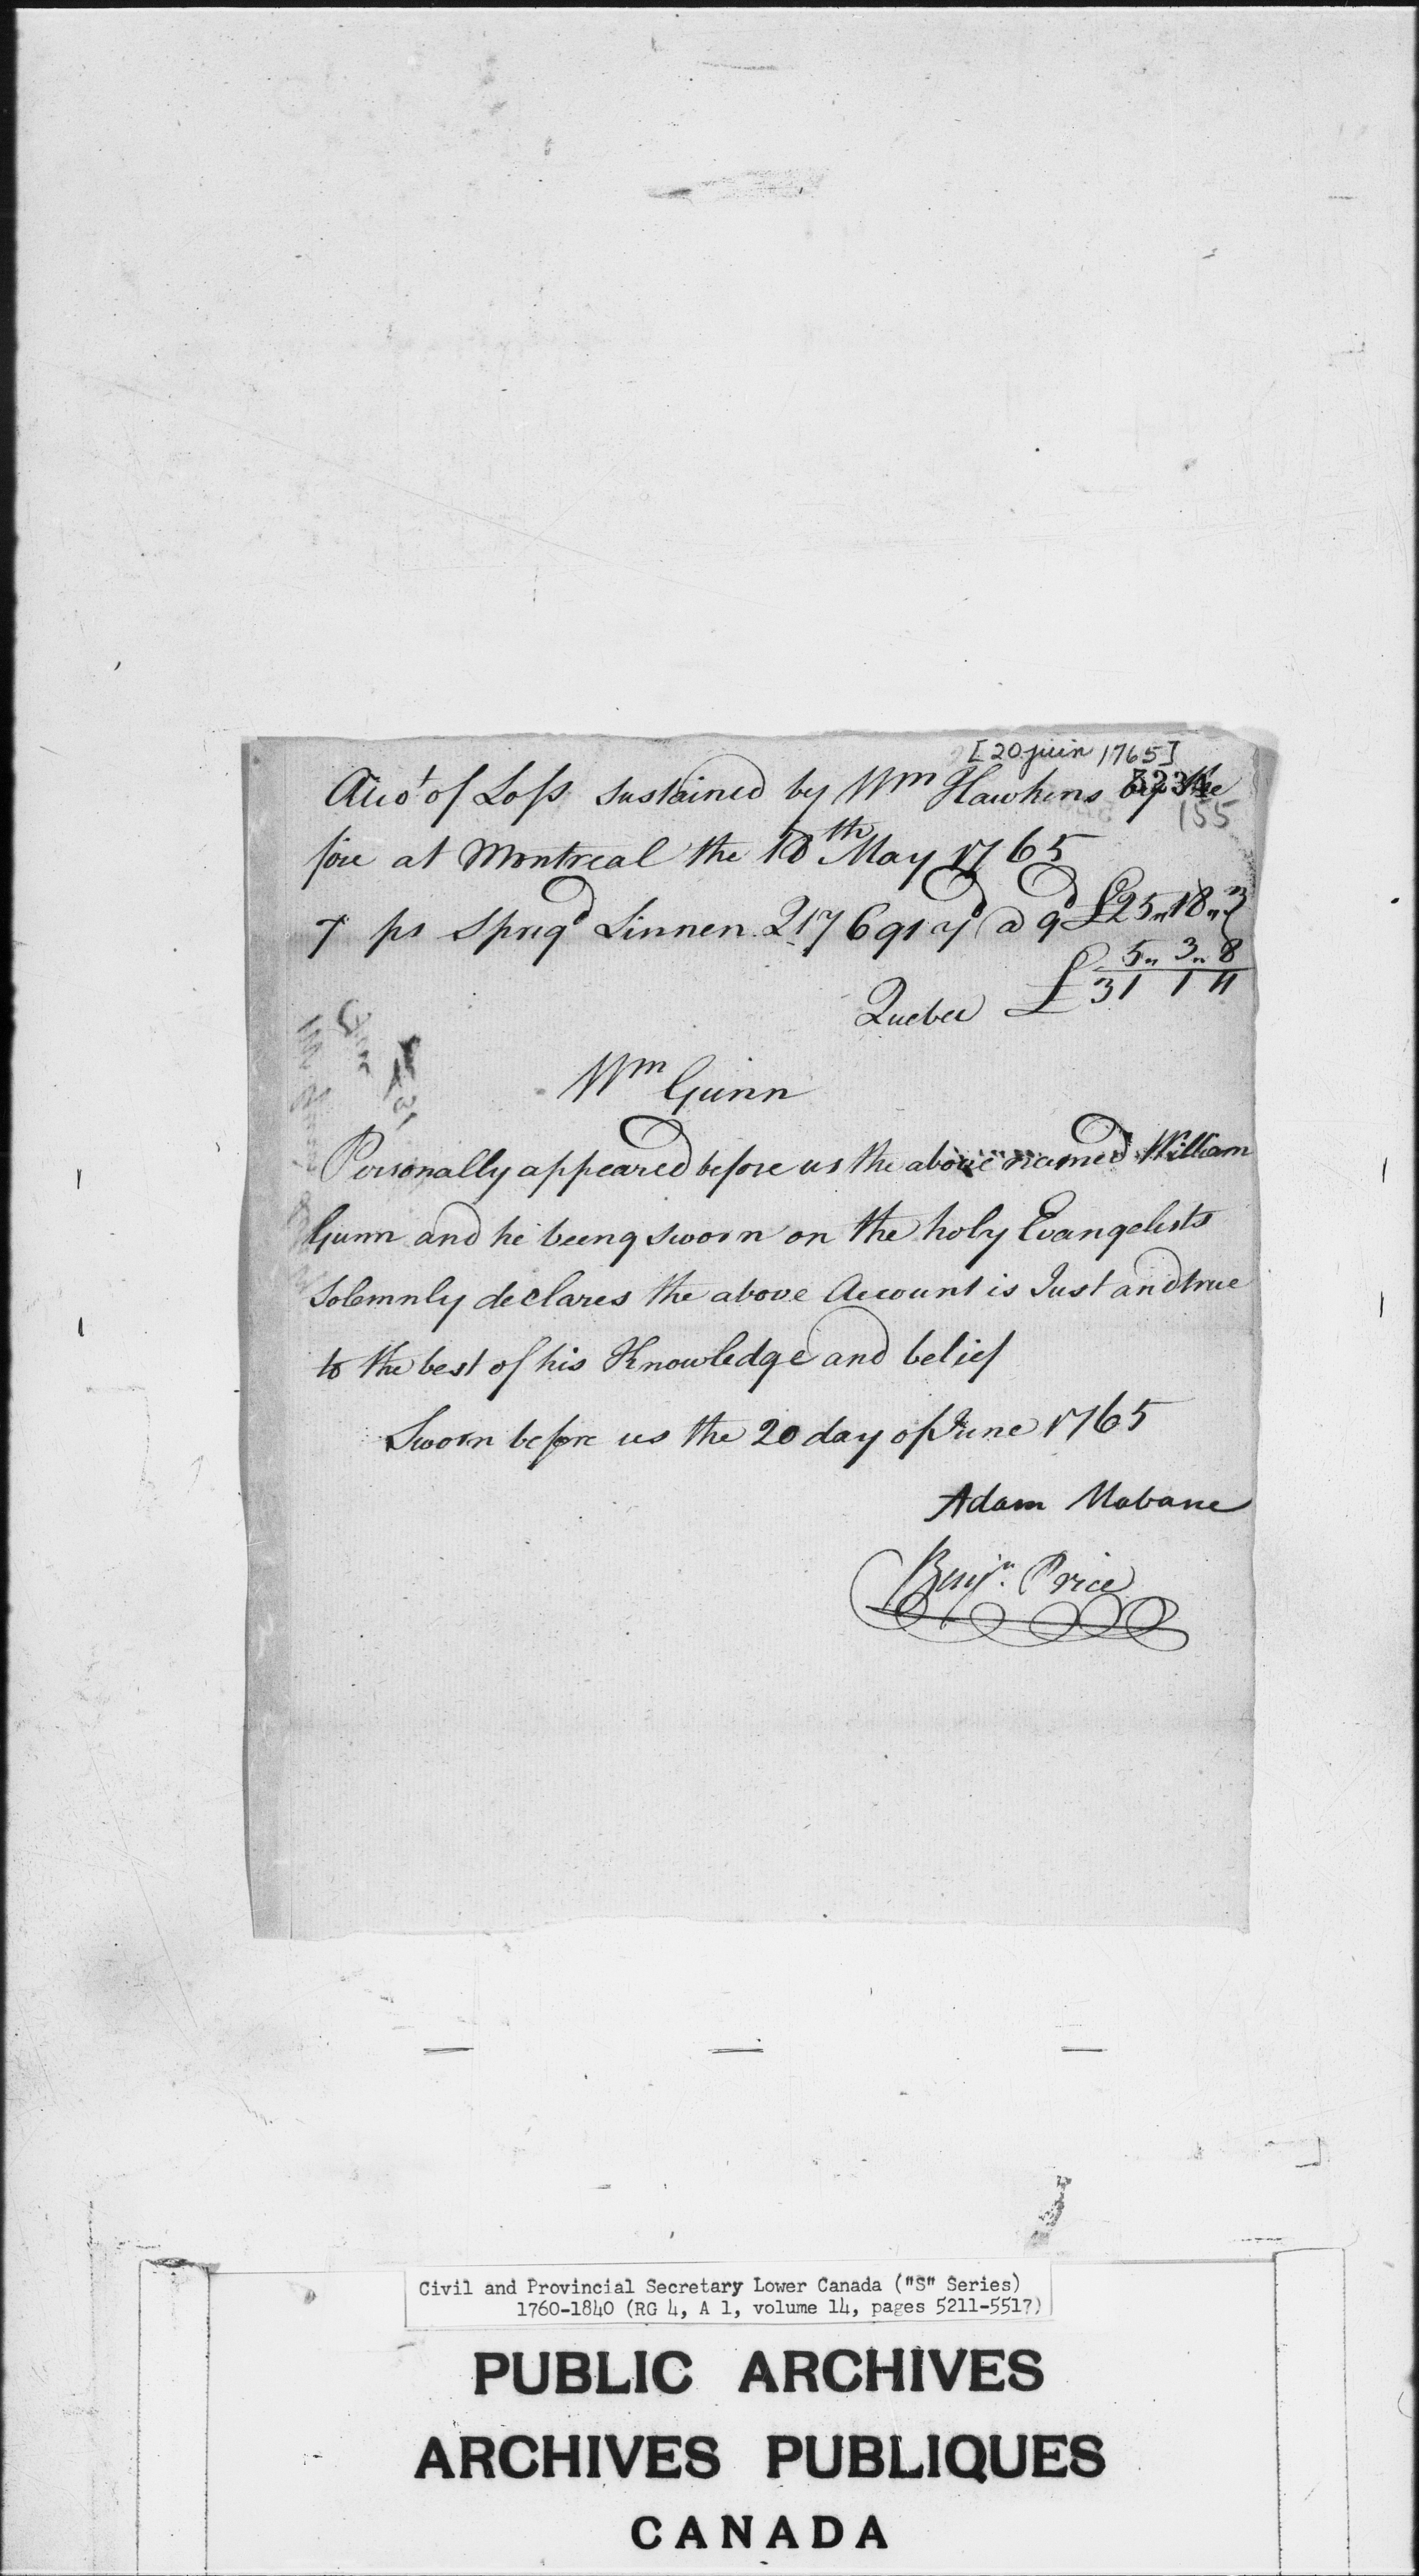 [20 juin 1765]
Acco.t of Loss sustained by Wm Hawkins by the
5234
155
fire at Montreal the 18th May 1765
7 ps Sprig'd Linnen. Qt 7 691 yd a 9d £25„18„3
5„ 3„ 8
Quebec £31 1 11
Wm Gunn
Personally appeared before us the above named William
Gunn and he being sworn on the holy Evangelists
Solemnly declares the above Account is Just and true
to the best of his Knowledge and belief
Sworn before us the 20 day of June 1765
Adam Mabane
Benjn. Price
Civil and Provincial Secretary Lower Canada ("S" Series)
1760-1840 (RG 4, A 1, volume 14, pages 5211-5517)
PUBLIC ARCHIVES
ARCHIVES PUBLIQUES
CANADA